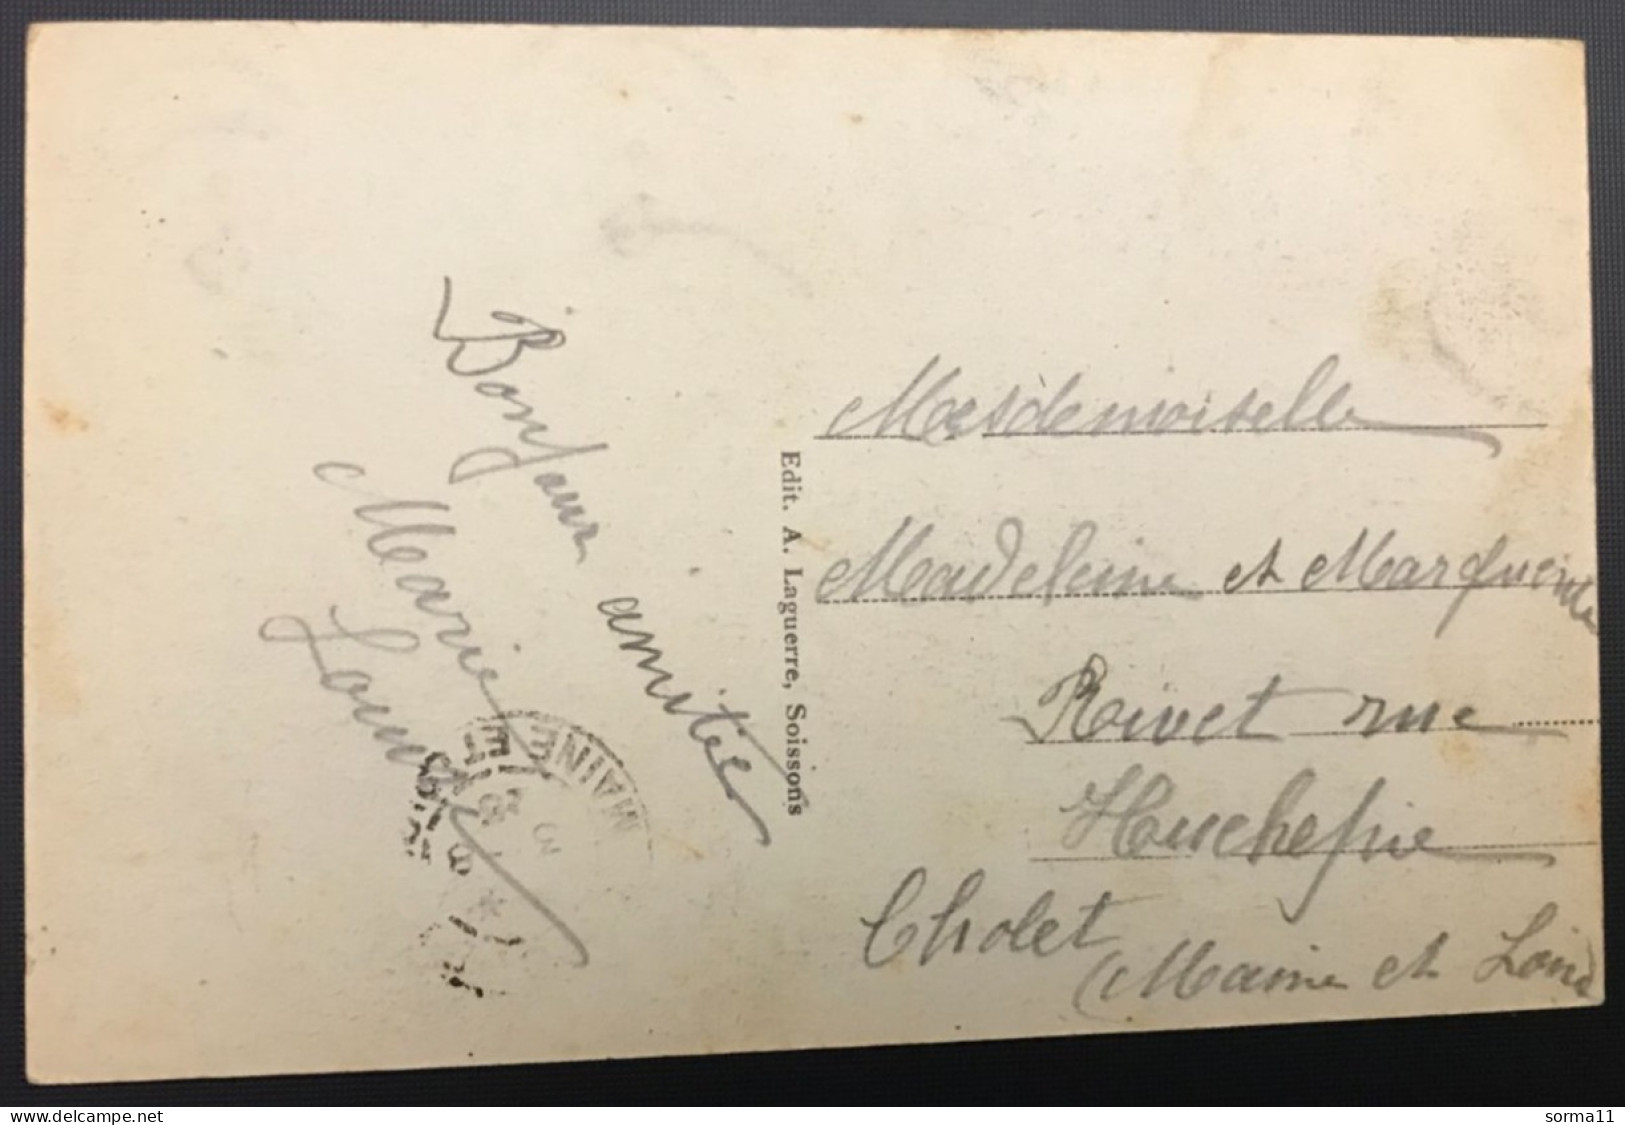 Bonjour amitié
Marie
Louise
MAINE ET
Edit. A. Laguerre, Soissons
Mesdemoiselle
Madeleine et Marguerite
Rivet rue
Huchepie
Cholet
(Maine et Loire)
www.delcampe.net
sorma11